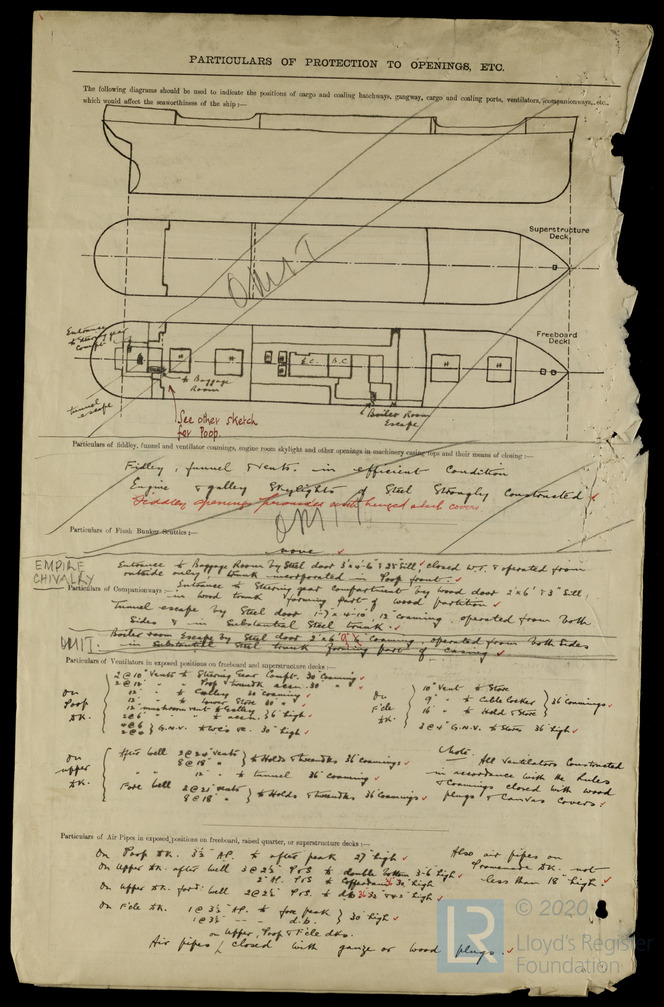 PARTICULARS OF PROTECTION TO OPENINGS, ETC.
The following diagrams should be used to indicate the positions of cargo and coaling hatchways, gangway, cargo and coaling ports, ventilators, companionways, etc.,
which would affect the seaworthiness of the ship:—
Superstructure
Deck.
OMIT
Entrance
to Steering gear
Compt.
Freeboard
Deck.
H
H
E.C.
B.C.
H
H
to Baggage
Room
tunnel
escape
Boiler Room
Escape
See other sketch
for Poop.
Particulars of fiddley, funnel and ventilator coamings, engine room skylight and other openings in machinery casing tops and their means of closing:—
Fidley, funnel & vents. in efficient Condition
Engine & galley Skylights of Steel Strongly constructed
Fiddley openings provided with hinged steel covers
OMIT
Particulars of Flush Bunker Scuttles:—
none
EMPIRE
CHIVALRY
Entrance to Baggage Room by Steel door 3'x4'-6" & 23" Sill, closed W.T. & operated from
outside only, trunk incorporated in Poop front.
Particulars of Companionways:— Entrance to Steering gear Compartment by wood door 2'x6' & 3" Sill,
in wood trunk forming part of wood partition
tunnel escape by Steel door 12" coaming, operated from both
Sides & in Substantial Steel trunk.
OMIT.
Boiler room Escape by Steel door 2'x6' 9" coaming, operated from both Sides
in Substantial Steel trunk forming part of casing
Particulars of Ventilators in exposed positions on freeboard and superstructure decks:—
On
Poop
Dk.
2 @ 10" Vents to Steering Gear Compt. 30" Coaming
2 @ 12" " " Poop & tweendk accn. 30" " "
12" " to Galley 30" Coaming
12" " to lower Store 30" "
12" mushroom vent to Galley
2 @ 6" " " " to accn. 36" high
G.N.V. to WC's etc. 30" high
On
F'cle
Dk.
10" Vent to Store
9" " to Cable Locker
16" " to Hold & Store
36" Coamings
3 @ 4" G.N.V. to Store 36" high
On
upper
Dk.
After Well 2 @ 24" vents
8 @ 18" "
to Holds & tweendks 36" Coamings
" " 12" " to tunnel 36" Coaming
Fore Well 2 @ 21" vents
8 @ 18" "
to Holds & tweendks 36" Coamings
Note. All Ventilators Constructed
in accordance with the Rules
& Coamings closed with wood
plugs & Canvas Covers.
Particulars of Air Pipes in exposed positions on freeboard, raised quarter, or superstructure decks:—
On Poop Dk. 3½" AP. to after peak 27" high
On Upper Dk. after well 3 @ 2½" P & S to double bottom 3-6 high
2" AP. P & S to Cofferdam 30" high
On upper Dk. ford. well 2 @ 2½" P & S. to db high
On F'cle Dk. 1 @ 3½" AP. to fore peak
1 @ 3½" — " — d.b.
30" high
on Upper, Poop & F'cle dks.
Air pipes closed with gauze or wood plugs.
Also air pipes on
Promenade Dk. not
less than 18" high.
LR
© 2020
Lloyd's Register
Foundation